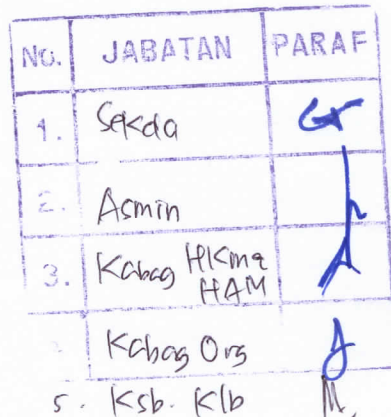 NO. JABATAN PARAF
1. Sekda
2. Asmin
3. Kabag HKma
HAM
Kabag Org
5. Ksb. Klb